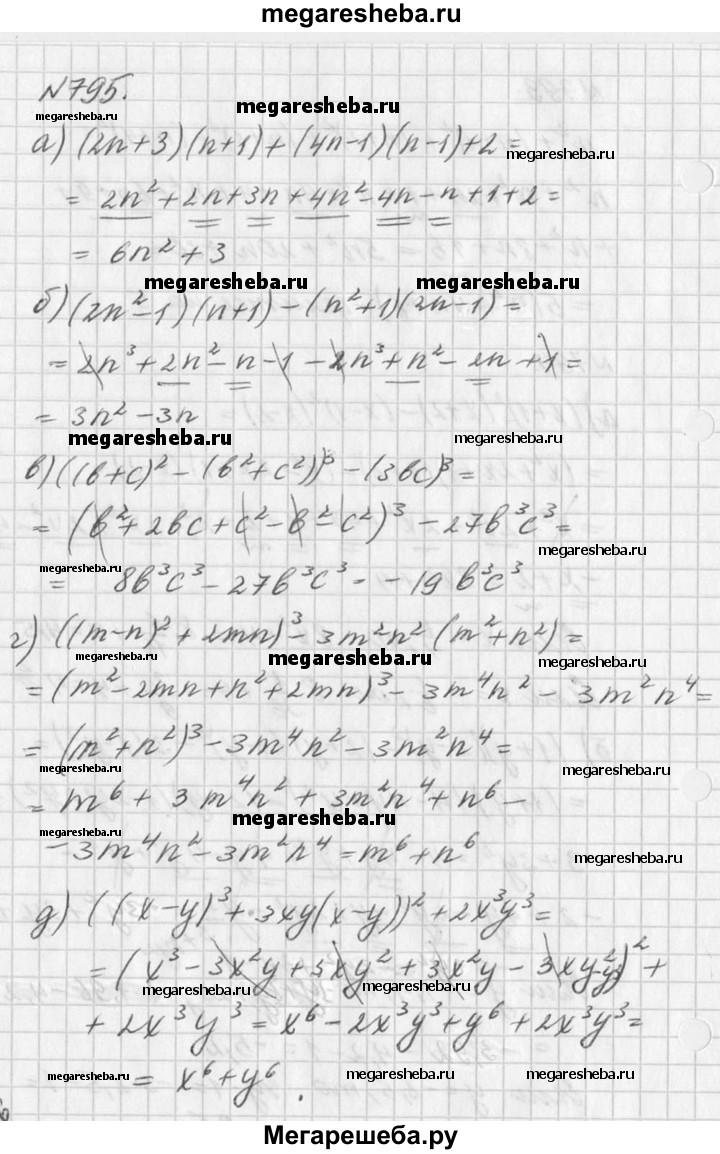 megaresheba.ru
N795.
megaresheba.ru
megaresheba.ru
а) (2n+3)(n+1)+(4n-1)(n-1)+2=
megaresheba.ru
= 2n²+2n+3n+4n²-4n-n+1+2=
= 6n²+3
megaresheba.ru
megaresheba.ru
б) (2n²-1)(n+1)-(n²+1)(2n-1)=
= 2n³+2n²-n-1-2n³+n²-2n+1=
= 3n²-3n
megaresheba.ru
megaresheba.ru
в) ((b+c)²-(b²+c²))³-(3bc)³=
= (b²+2bc+c²-b²-c²)³-27b³c³=
megaresheba.ru
megaresheba.ru
= 8b³c³-27b³c³=-19b³c³
г) ((m-n)²+2mn)³-3m²n²(m²+n²)=
megaresheba.ru
megaresheba.ru
megaresheba.ru
= (m²-2mn+n²+2mn)³-3m⁴n²-3m²n⁴=
= (m²+n²)³-3m⁴n²-3m²n⁴=
megaresheba.ru
megaresheba.ru
= m⁶+3m⁴n²+3m²n⁴+n⁶-
megaresheba.ru
megaresheba.ru
-3m⁴n²-3m²n⁴=m⁶+n⁶
megaresheba.ru
д) ((x-y)³+3xy(x-y))²+2x³y³=
= (x³-3x²y+3xy²+3x²y-3xy²-y³)²+
megaresheba.ru
megaresheba.ru
+2x³y³=x⁶-2x³y³+y⁶+2x³y³=
megaresheba.ru
= x⁶+y⁶.
megaresheba.ru
megaresheba.ru
Мегарешеба.ру